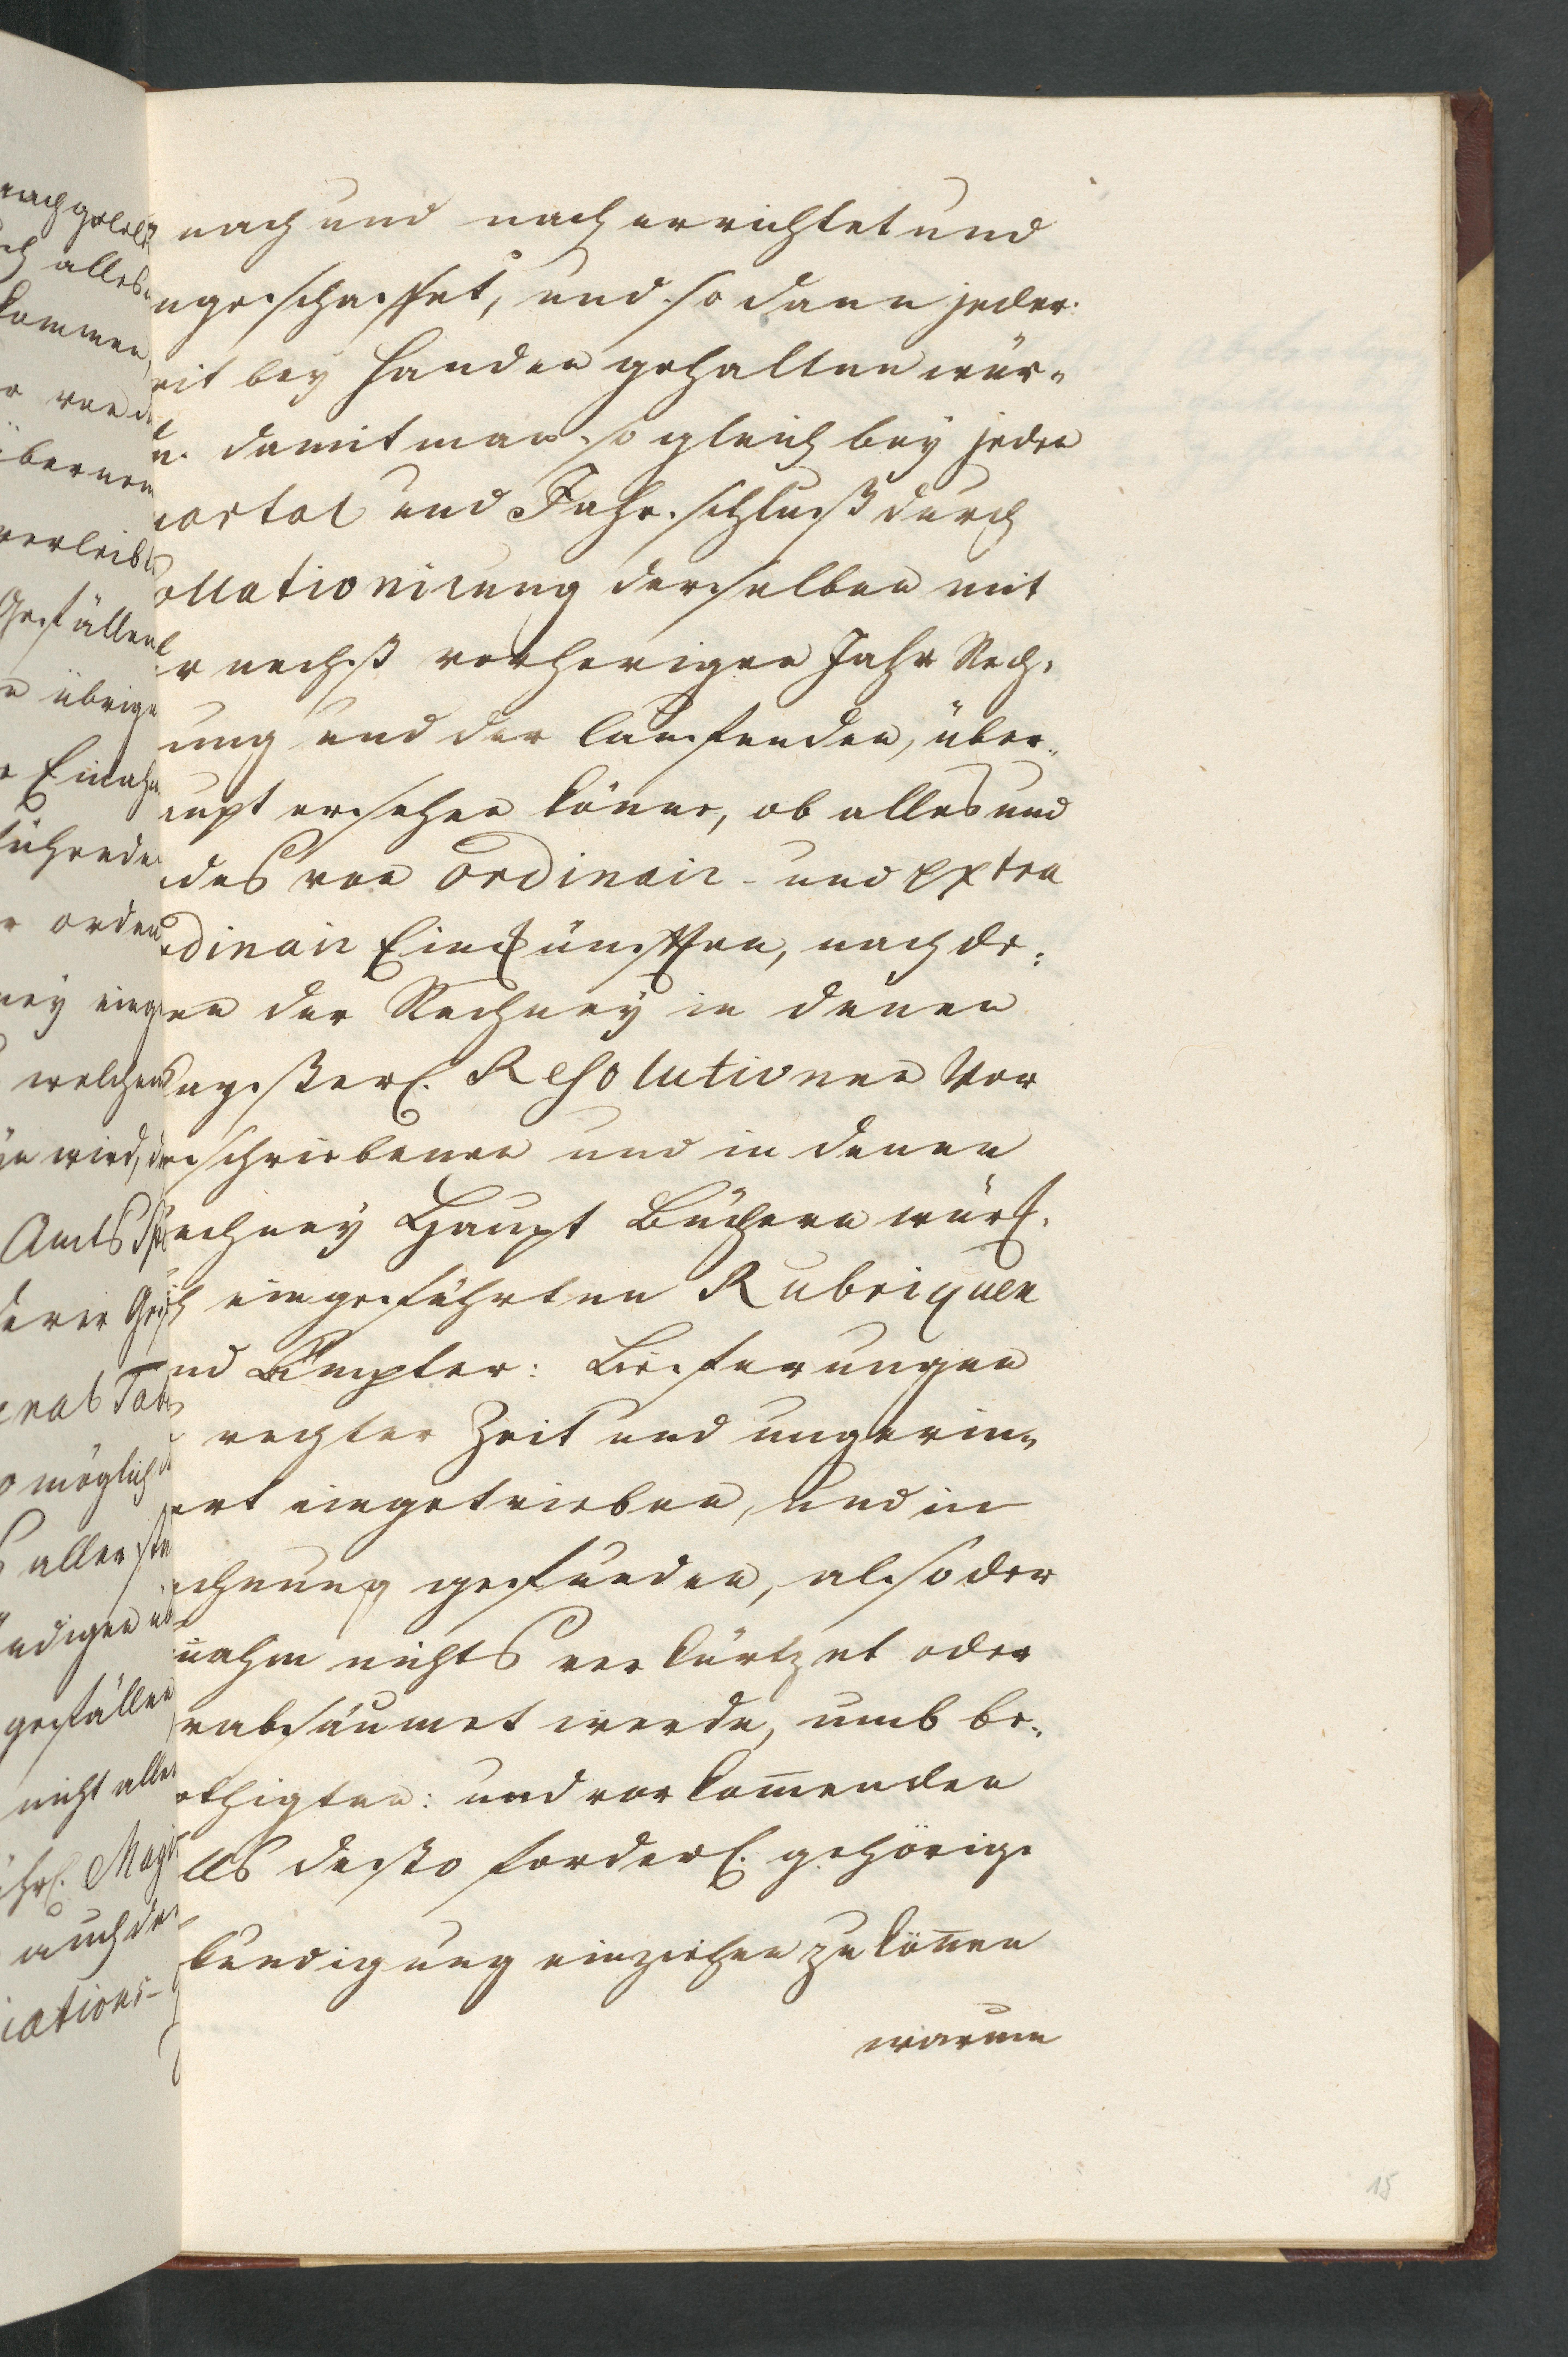 nach und nach errichtet und
ngeschaffet, und so dann jeder
eit bey Handen gehalten wür-
n. damit man so gleich bey jeden
uartal und Jahr schluß durch
ollationirung derselben mit
r nechst vorherigen Jahr Rech-
ung und der lauffenden, über-
aupt ersehen könne, ob alles und
edes von ordinair- und extra
rdinair Einkünfften, nach de-
nen der Rechney in denen
Kayßerl. Resolutionen Vor
geschriebenen und in denen
Rechney Haupt Büchern würkl.
ich eingeführten Rubriquen
nd Ämpter: Lieferungen
rechter Zeit und ungerin-
ert eingetrieben, und in
echnung gefunden, also der
nnahm nichts verkürtzet oder
rabsäumet werde, umb be-
öthigten: und vorkom̄enden
lls desto forderl. gehörige
kundigung einziehen zu kön̄en
warum
15